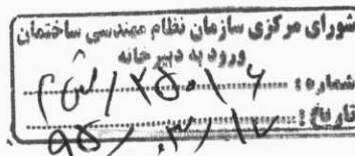 شورای مرکزی سازمان نظام مهندسی ساختمان
ورود به دبیرخانه
شماره :
تاریخ : ۹۵/۰۳/۱۷